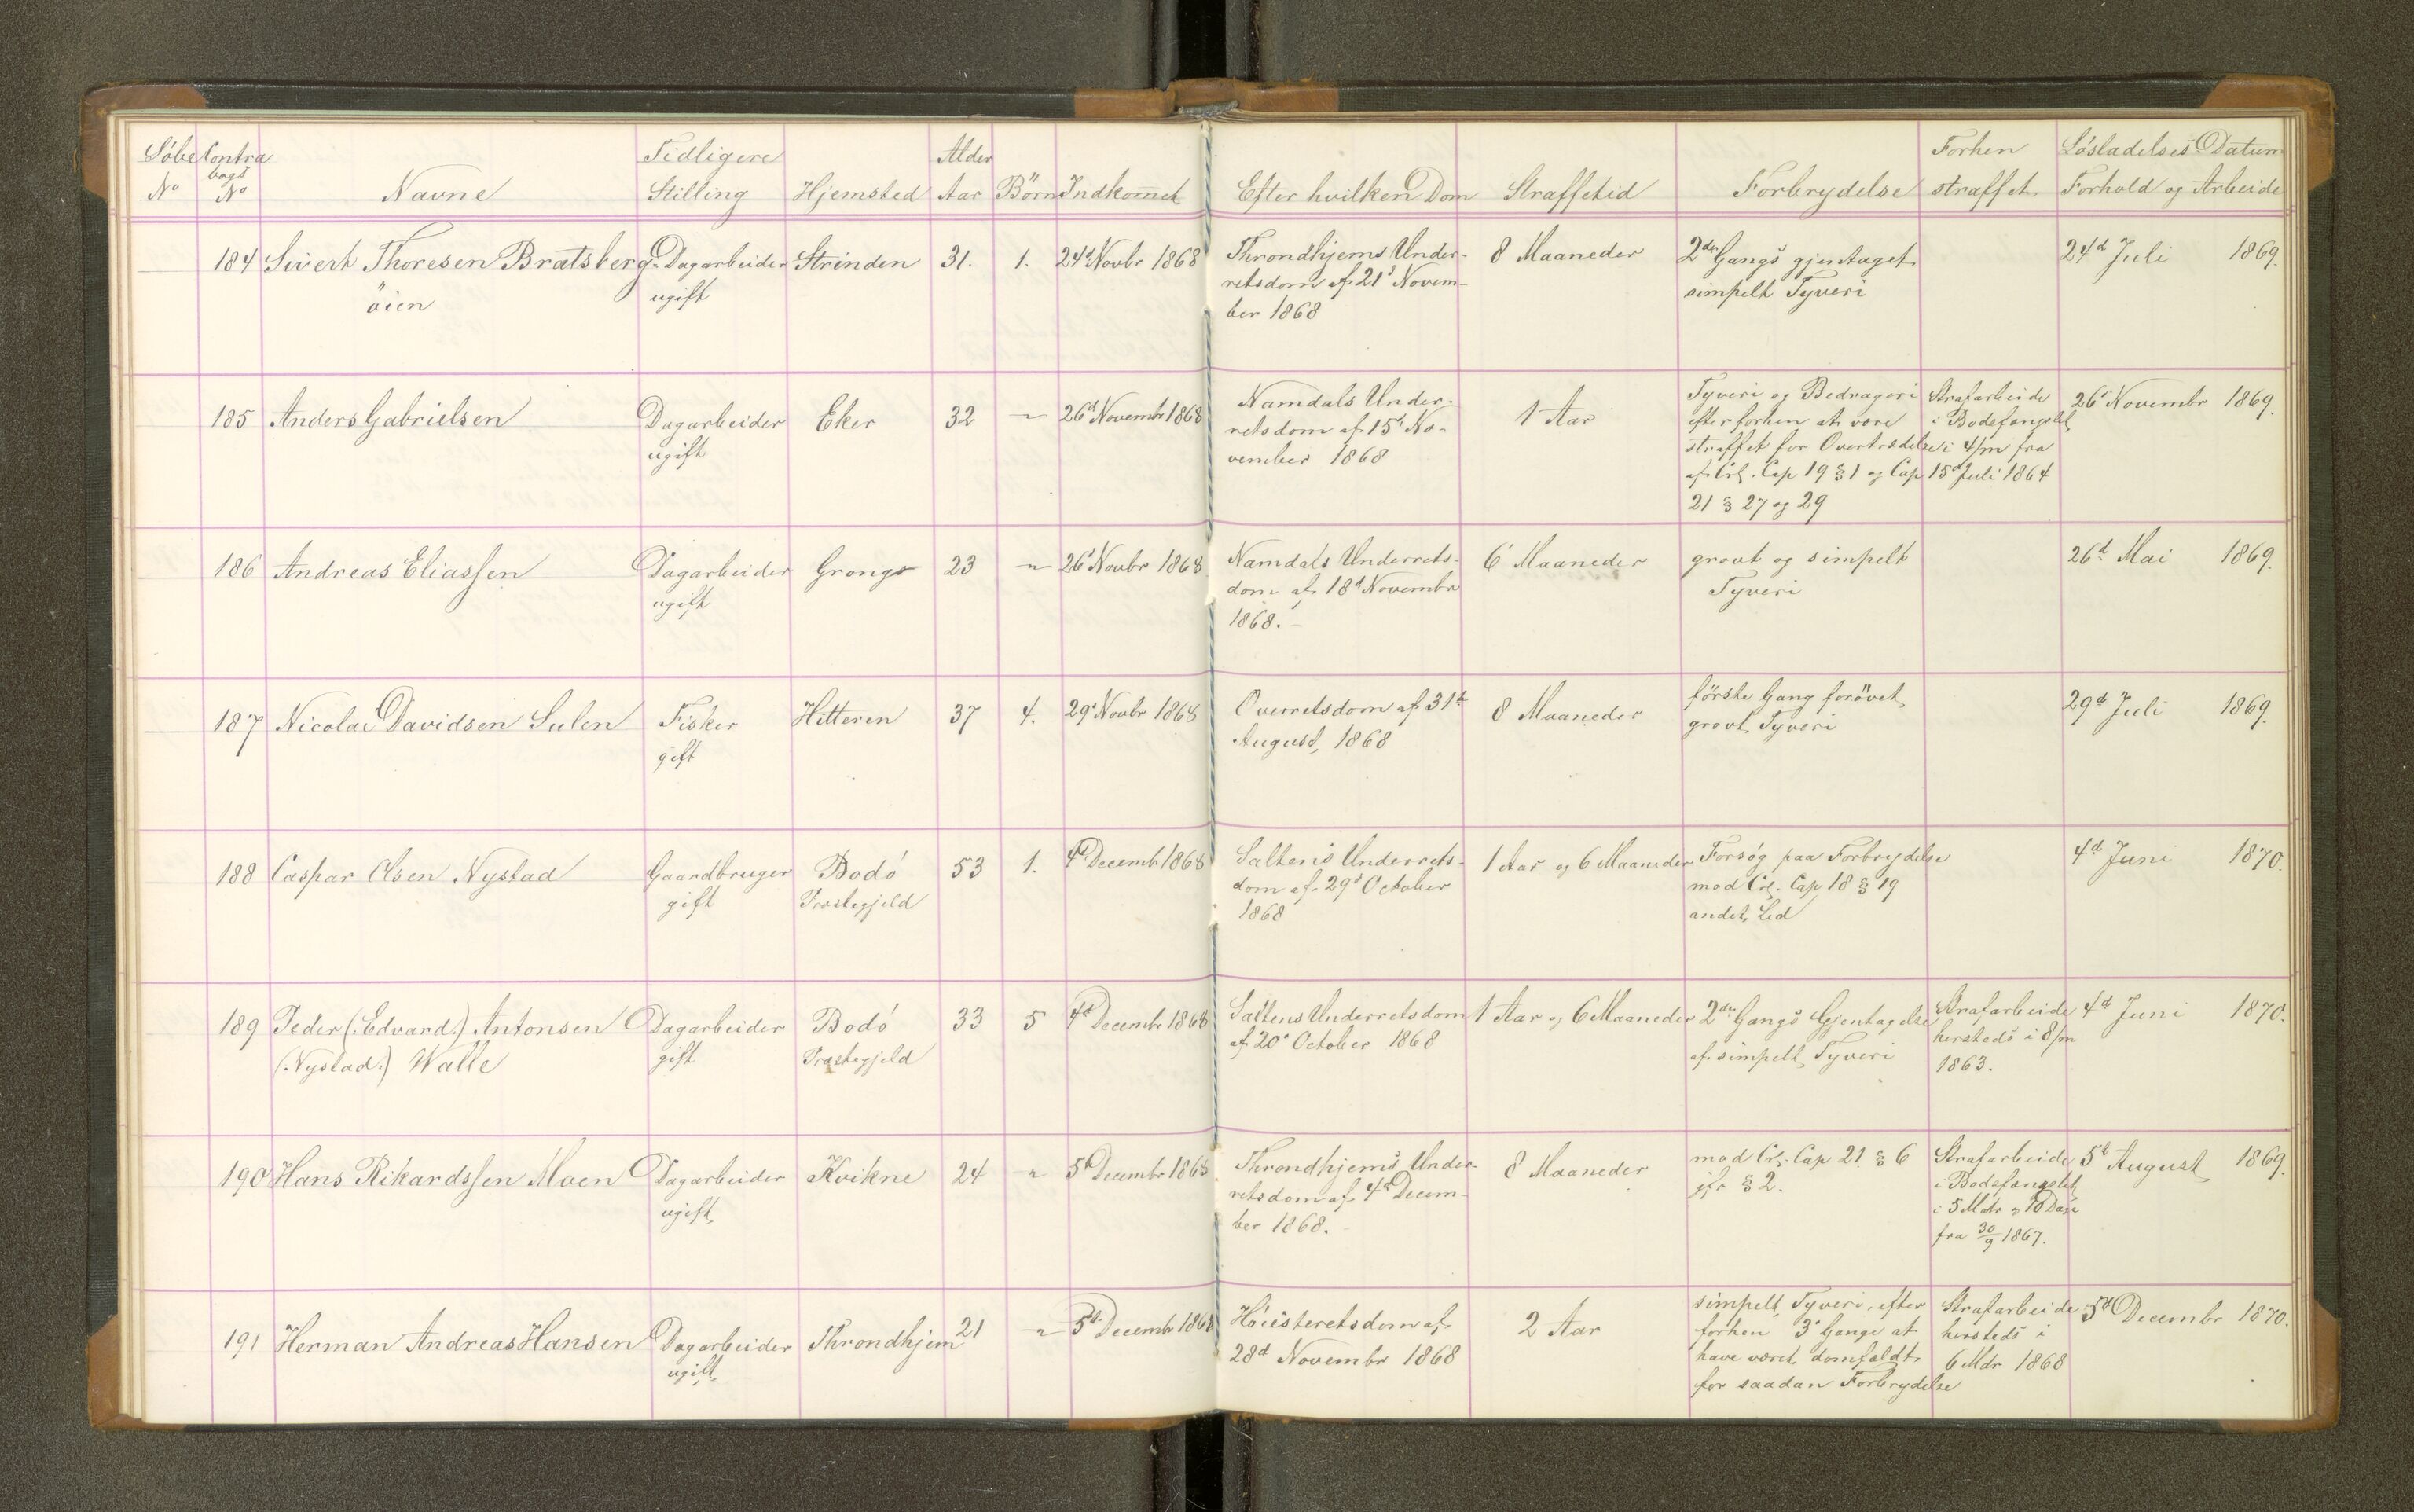 Löbe Contra Tidligere Alder Forhen Lösladelses Datum
No bogs No Navne Stilling Hjemsted Aar Börn Indkomet Efter hvilken Dom Straffetid Forbrydelse straffet Forhold og Arbeide
184 Sivert Thoresen Bratsberg- Dagarbeider Strinden 31. 1. 24d Novbr 1868 Throndhjems Under- 8 Maaneder 2den Gangs gjentaget 24d Juli 1869.
öien ugift retsdom af 21d Novem- simpelt Tyveri
ber 1868
185 Anders Gabrielsen Dagarbeider Eker 32 " 26d Novembr 1868 Namdals Under- 1 Aar Tyveri og Bedrageri Strafarbeide 26d Novembr 1869.
ugift retsdom af 15d No- efter forhen at være i Bodsfængslet
vember 1868 straffet for Overtrædelse i 4/m fra
af Crl. Cap 19 § 1 og Cap 15d Juli 1864
21 § 27 og 29
186 Andreas Eliassen Dagarbeider Grong 23 " 26d Novbr 1868 Namdals Underrets- 6 Maaneder grovt og simpelt 26d Mai 1869.
ugift dom af 18d Novembr Tyveri
1868.-
187 Nicolai Davidsen Sulen Fisker Hitteren 37 4. 29d Novbr 1868 Overretsdom af 31te 8 Maaneder förste Gang forövet 29d Juli 1869.
gift August, 1868 grovt Tyveri
188 Caspar Olsen Nystad Gaardbruger Bodö 53 1. 4d Decemb 1868 Saltens Underrets- 1 Aar og 6 Maaneder Forsög paa Forbrydelse 4d Juni 1870.
gift Prestegjeld dom af 29d October mod Crl. Cap 18 § 19
1868 andet Led
189 Peder (:Edvard:) Antonsen Dagarbeider Bodö 33 5 4d Decembr 1868 Saltens Underretsdom 1 Aar og 6 Maaneder 2den Gangs Gjentagelse Strafarbeide 4d Juni 1870.
(:Nystad:) Walle gift Prestegjeld af 20d October 1868 af simpelt Tyveri hersteds i 8/m
1863.
190 Hans Rikardssen Moen Dagarbeider Kvikne 24 " 5d Decembr 1868 Throndhjems Under- 8 Maaneder mod Crl. Cap 21 § 6 Strafarbeide 5d August 1869.
ugift retsdom af 4d Decem- jfr § 2. i Bodsfængslet
ber 1868.- i 5 Mdr og 18 Dage
fra 30/9 1867.
191 Herman Andreas Hansen Dagarbeider Throndhjem 21 " 5d Decembr 1868 Höiesteretsdom af 2 Aar simpelt Tyveri, efter Strafarbeide 5d Decembr 1870.
ugift 28d Novembr 1868 forhen 3d Gange at hersteds i
have været domfældt 6 Mdr 1868
for saadan Forbrydelse